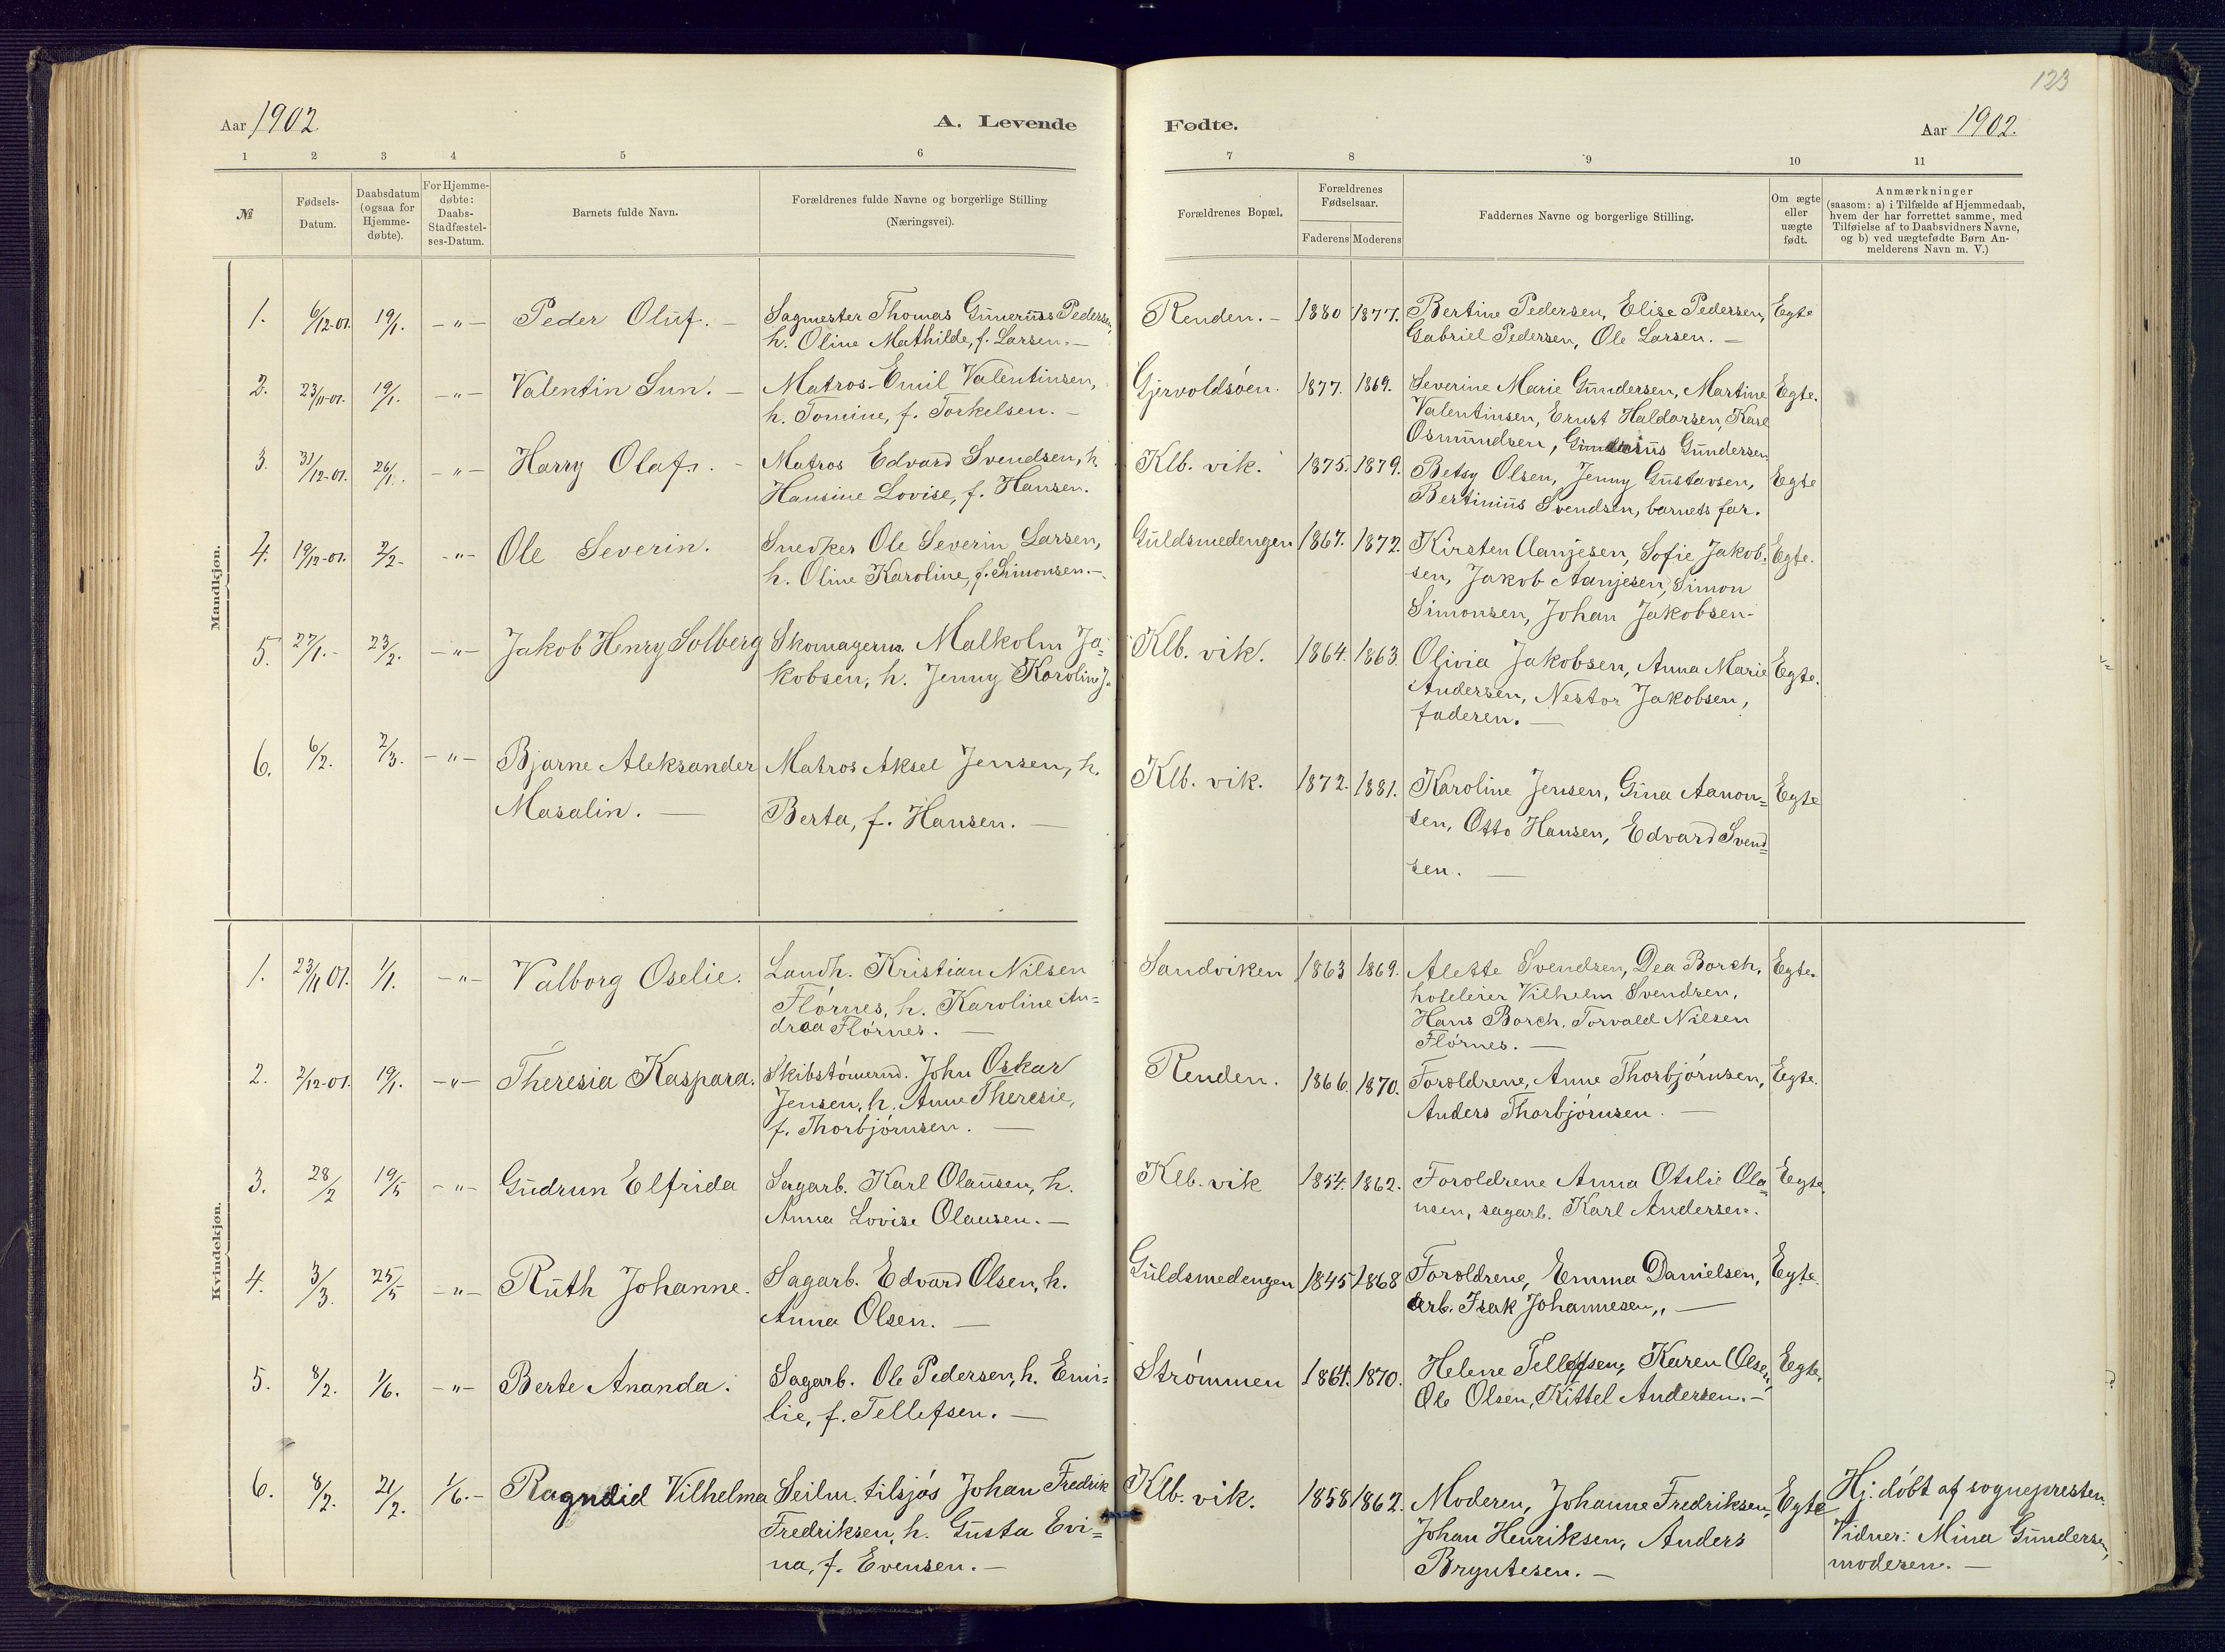 123
Aar 1902
A. Levende
Fødte.
Aar 1902.
1 2 3 4 5 6
7 8 9 10 11
№
Fødsels-
Datum.
Daabsdatum
(ogsaa for
Hjemme-
døbte).
For Hjemme-
døbte:
Daabs-
Stadfæstel-
ses-Datum.
Barnets fulde Navn.
Forældrenes fulde Navne og borgerlige Stilling
(Næringsvei).
Forældrenes Bopæl.
Forældrenes
Fødselsaar.
Faderens Moderens
Faddernes Navne og borgerlige Stilling.
Om ægte
eller
uægte
født.
Anmærkninger
(saasom: a) i Tilfælde af Hjemmedaab,
hvem der har forrettet samme, med
Tilføielse af to Daabsvidners Navne,
og b) ved uægtefødte Børn An-
melderens Navn m. V.)
Mandkjøn.
1. 6/12-01. 19/1. -"- Peder Oluf. - Sagmester Thomas Gunerius Pedersen,
h. Oline Mathilde, f. Larsen. -
Renden. - 1880 1877. Bertine Pedersen, Elise Pedersen, Egte
Gabriel Pedersen, Ole Larsen. -
2. 23/11-01. 19/1. -"- Valentin Sun. - Matros Emil Valentinsen,
h. Tomine, f. Torkelsen. -
Gjervoldsøen. 1877. 1869. Severine Marie Gundersen, Martine Egte.
Valentinsen, Ernst Haldorsen, Karl
Osmundsen, Gunderius Gundersen
3. 31/12-01. 26/1. -"- Harry Olaf. - Matros Edvard Svendsen, h.
Hansine Lovise, f. Hansen.
Klb. vik. 1875. 1879. Betsy Olsen, Jenny Gustavsen, Egte
Bertinius Svendsen, barnets far.
4. 19/12-01. 2/2- -"- Ole Severin. Snedker Ole Severin Larsen,
h. Oline Karoline, f. Simonsen. -
Guldsmedengen 1867. 1872. Kirsten Aanjesen, Sofie Jakob- Egte.
sen, Jakob Aanjesen, Simon
Simonsen, Johan Jakobsen.
5. 27/1.- 23/2. -"- Jakob Henry Solberg Skomagerm. Malkolm Ja=
kobsen, h. Jenny Karoline J.
Klb. vik. 1864. 1863. Olivia Jakobsen, Anna Marie Egte.
Andersen, Nestor Jakobsen,
faderen. -
6. 6/2. 2/3. -"- Bjarne Aleksander Matros Aksel Jensen, h.
Masalin. - Berta, f. Hansen. -
Klb. vik. 1872. 1881. Karoline Jensen, Gina Aanon= Egte
sen, Otto Hansen, Edvard Svend=
sen. -
Kvindekjøn.
1. 23/11 01. 1/1. -"- Valborg Oselie. Landh. Kristian Nilsen
Flørnes, h. Karoline An=
drea Flørnes. -
Sandviken 1863 1869. Alette Svendsen, Dea Borch, Egte.
hoteleier Vilhelm Svendsen,
Hans Borch. Torvald Nilsen
Flørnes. -
2. 2/12-01. 19/1. -"- Theresia Kaspara. Skibstømermd. John Oskar
Jensen, h. Anne Theresie,
f. Thorbjørnsen. -
Renden. 1866. 1870. Foroldrene, Anne Thorbjørnsen, Egte.
Anders Thorbjørnsen. -
3. 28/2 19/5 -"- Gudrun Elfrida Sagarb. Karl Olausen, h.
Anna Lovise Olausen. -
Klb. vik 1854. 1862. Foroldrene Anna Otilie Ola= Egte.
usen, sagarb. Karl Andersen.
4. 3/3. 25/5 -"- Ruth Johanne. Sagarb. Edvard Olsen, h.
Anna Olsen. -
Guldsmedengen 1845 1868 Foroldrene, Emma Danielsen, Egte.
arb. Isak Johannesen,, -
5. 8/2. 1/6. -"- Berte Ananda. Sagarb. Ole Pedersen, h. Emi=
lie, f. Tellefsen. -
Strømmen 1864. 1870. Helene Tellefsen, Karen Olsen, Egte.
Ole Olsen, Kittel Andersen. -
6. 8/2. 21/2. 1/6.- Ragndid Vilhelma Seilm. tilsjøs Johan Fredrik
Fredriksen, h. Gusta Evi=
na, f. Evensen. -
Klb. vik. 1858 1862. Moderen, Johanne Fredriksen, Egte Hj. døbt af sognepresten.
Johan Henriksen, Anders Vidner: Mina Gundersen,
Bryntesen. - moderen. -